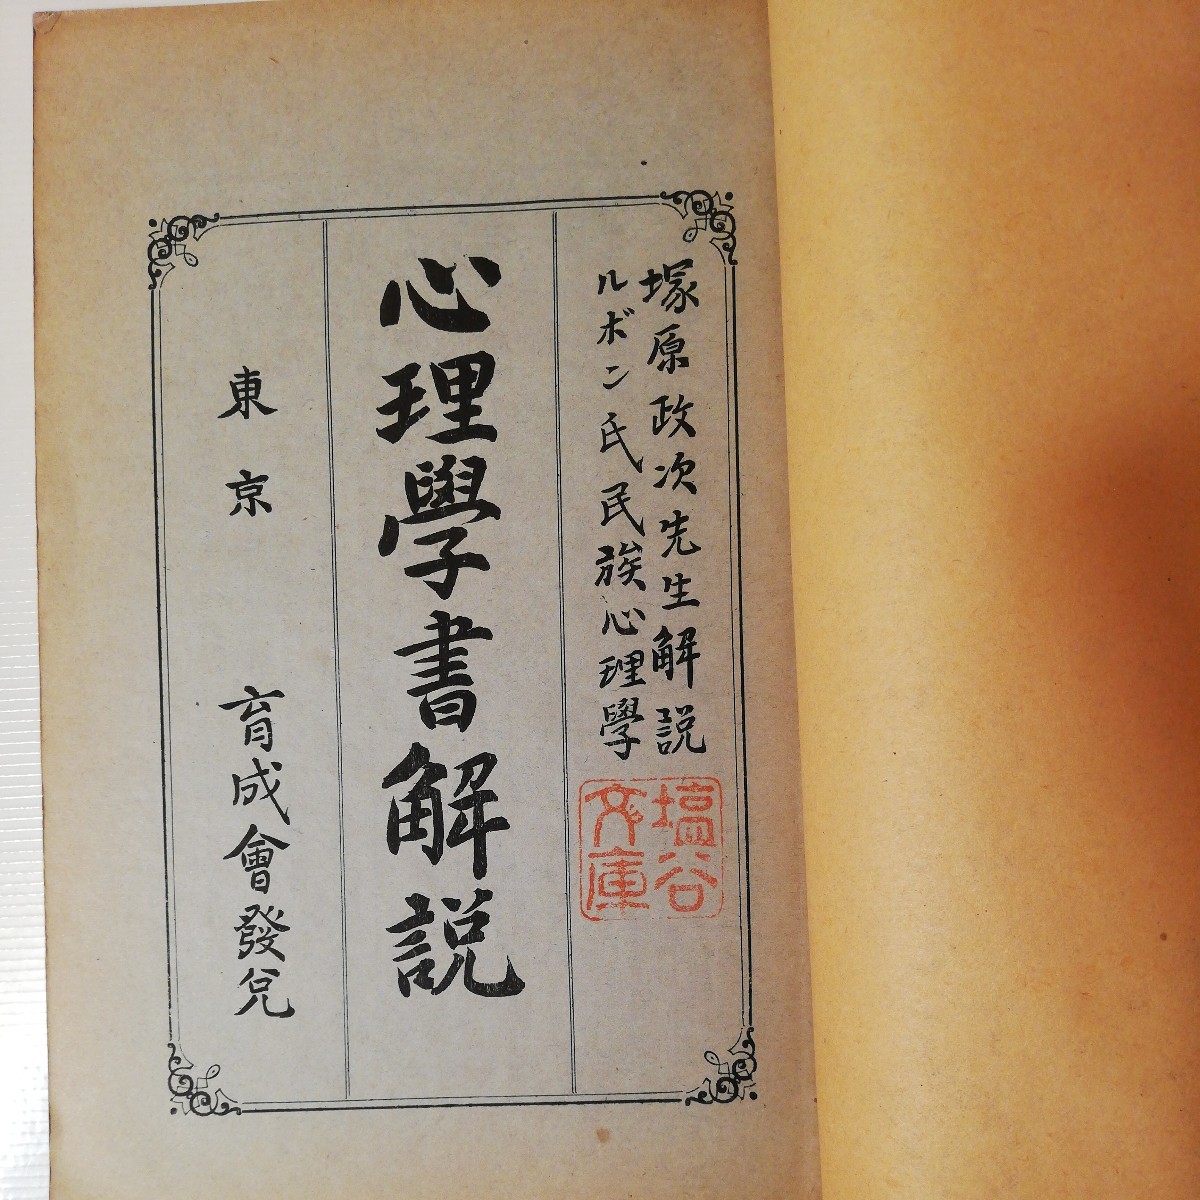 塚原政次先生解説
ルボン氏民族心理學
塩谷
文庫
心理學書解説
東京　育成會發兌